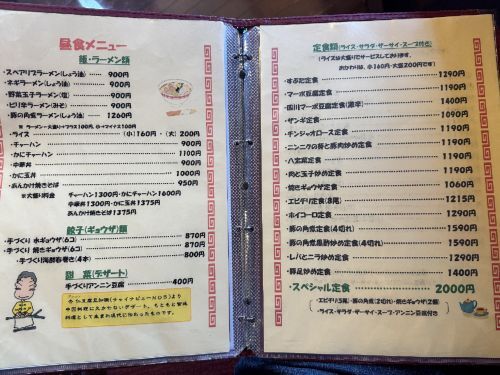 昼食メニュー
飯・ラーメン類
・スペアリブラーメン(しょう油) 900円
・ネギラーメン(しょう油) 900円
・野菜玉子ラーメン(塩) 900円
・ピリ辛ラーメン(みそ) 900円
・豚の角煮ラーメン(しょう油) 1260円
※ ラーメン大盛りプラス100円、小マイナス100円
・ライス (小)160円・(大)200円
・チャーハン 900円
・かにチャーハン 1100円
・中華丼 900円
・かに玉丼 1000円
・あんかけ焼きそば 950円
※大盛り料金 チャーハン1300円・かにチャーハン1600円
中華丼1300円・かに玉丼1375円
あんかけ焼きそば1375円
餃子(ギョウザ)類
・手づくり水ギョウザ(6コ) 870円
・手づくり焼きギョウザ(6コ) 870円
・手づくり海鮮春巻き(4本) 800円
甜菜(デザート)
・手づくりアンニン豆腐 400円
定食類(ライス・サラダ・ザーサイ・スープ付き)
(ライスは大盛りでサービスしております。
おかわりは、小160円・大盛200円です)
・すぶた定食 1290円
・マーボ豆腐定食 1190円
・四川マーボ豆腐定食(激辛) 1400円
・ザンギ定食 1090円
・チンジャオロース定食 1190円
・ニンニクの芽と豚肉炒め定食 1190円
・八宝菜定食 1190円
・肉と玉子炒め定食 1190円
・焼きギョウザ定食 1060円
・エビチリ定食(8尾) 1215円
・ホイコーロ定食 1290円
・豚の角煮定食(4切れ) 1590円
・豚の角煮黒酢炒め定食(4切れ) 1590円
・レバとニラ炒め定食 1290円
・豚足炒め定食 1400円
・スペシャル定食 2000円
・エビチリ5尾・豚の角煮(2切れ)・焼きギョウザ(2個)
・ライス・サラダ・ザーサイ・スープ・アンニン豆腐付き